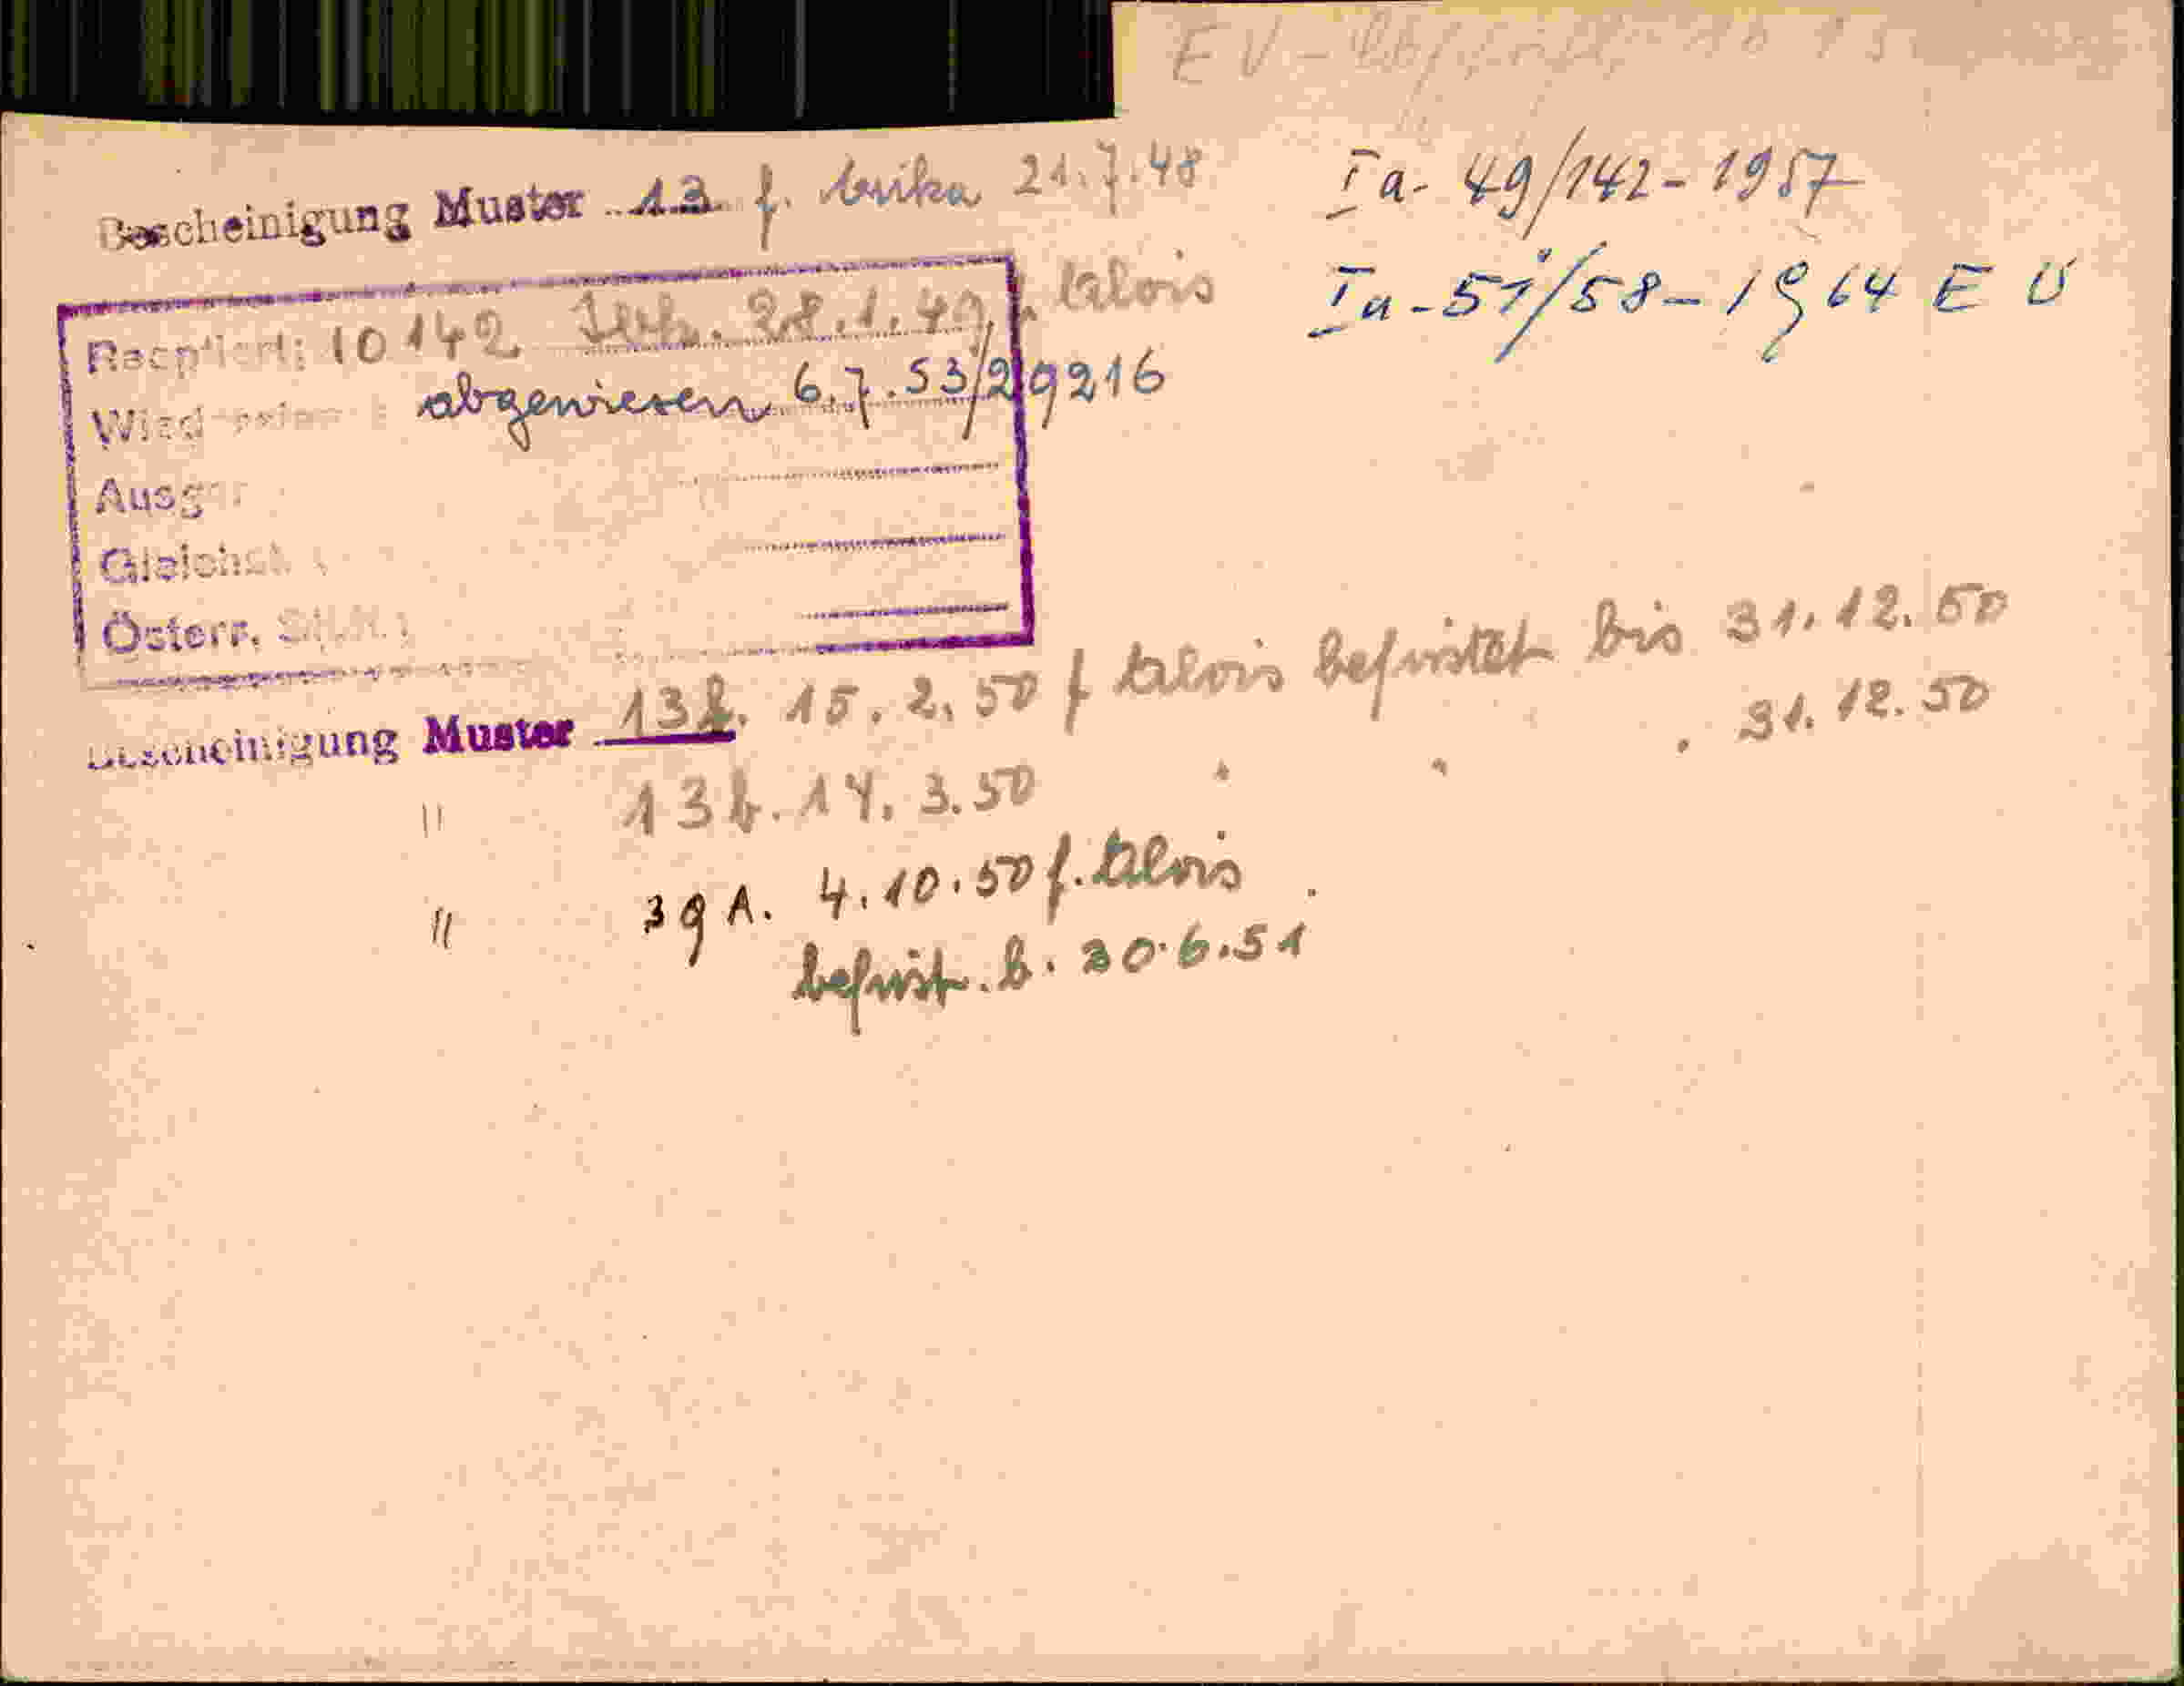 EV-
Bescheinigung Muster 13 f. Erika 21.7.48
Ia- 49/142-1957
Ia-51/58-1964 E Ü
10142 28.1.49 f. Alois
abgewiesen 6.7.53/29216
Ausg
Gleichst.
Österr.
Bescheinigung Muster 13b. 15.2.50 f Alois befristet bis 31.12.50
" 13b. 14.3.50 " " " 31.12.50
" 39 A. 4.10.50 f. Alois
befrist. b. 30.6.51